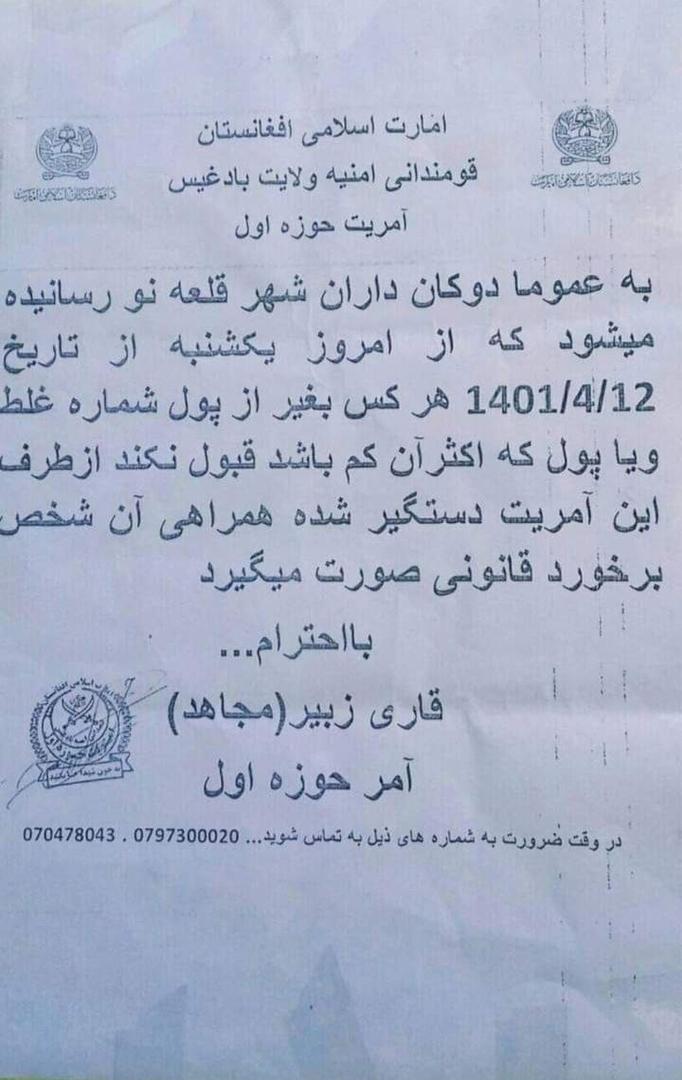 امارت اسلامی افغانستان
قومندانی امنیه ولایت بادغیس
آمریت حوزه اول
به عموما دوکان داران شهر قلعه نو رسانیده
میشود که از امروز یکشنبه از تاریخ
1401/4/12 هر کس بغیر از پول شماره غلط
ویا پول که اکثرآن کم باشد قبول نکند ازطرف
این آمریت دستگیر شده همراهی آن شخص
برخورد قانونی صورت میگیرد
بااحترام...
قاری زبیر(مجاهد)
آمر حوزه اول
در وقت ضرورت به شماره های ذیل به تماس شوید... 0797300020 . 070478043